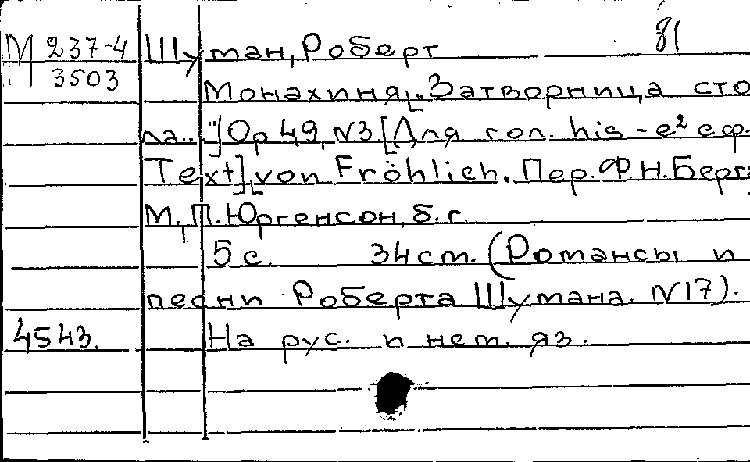 М 237-4 Шуман, Роберт 81
3503
Монахиня ["Затворница сто
ла.."] Op 49, N3 [Для гол. his - e² с ф.
Text], von Fröhlich. Пер. Ф.Н. Берг
М., П. Юргенсон, б. г.
5 с. 34 cm. (Романсы и
песни Роберта Шумана. N17).
4543. На рус. и нем. яз.